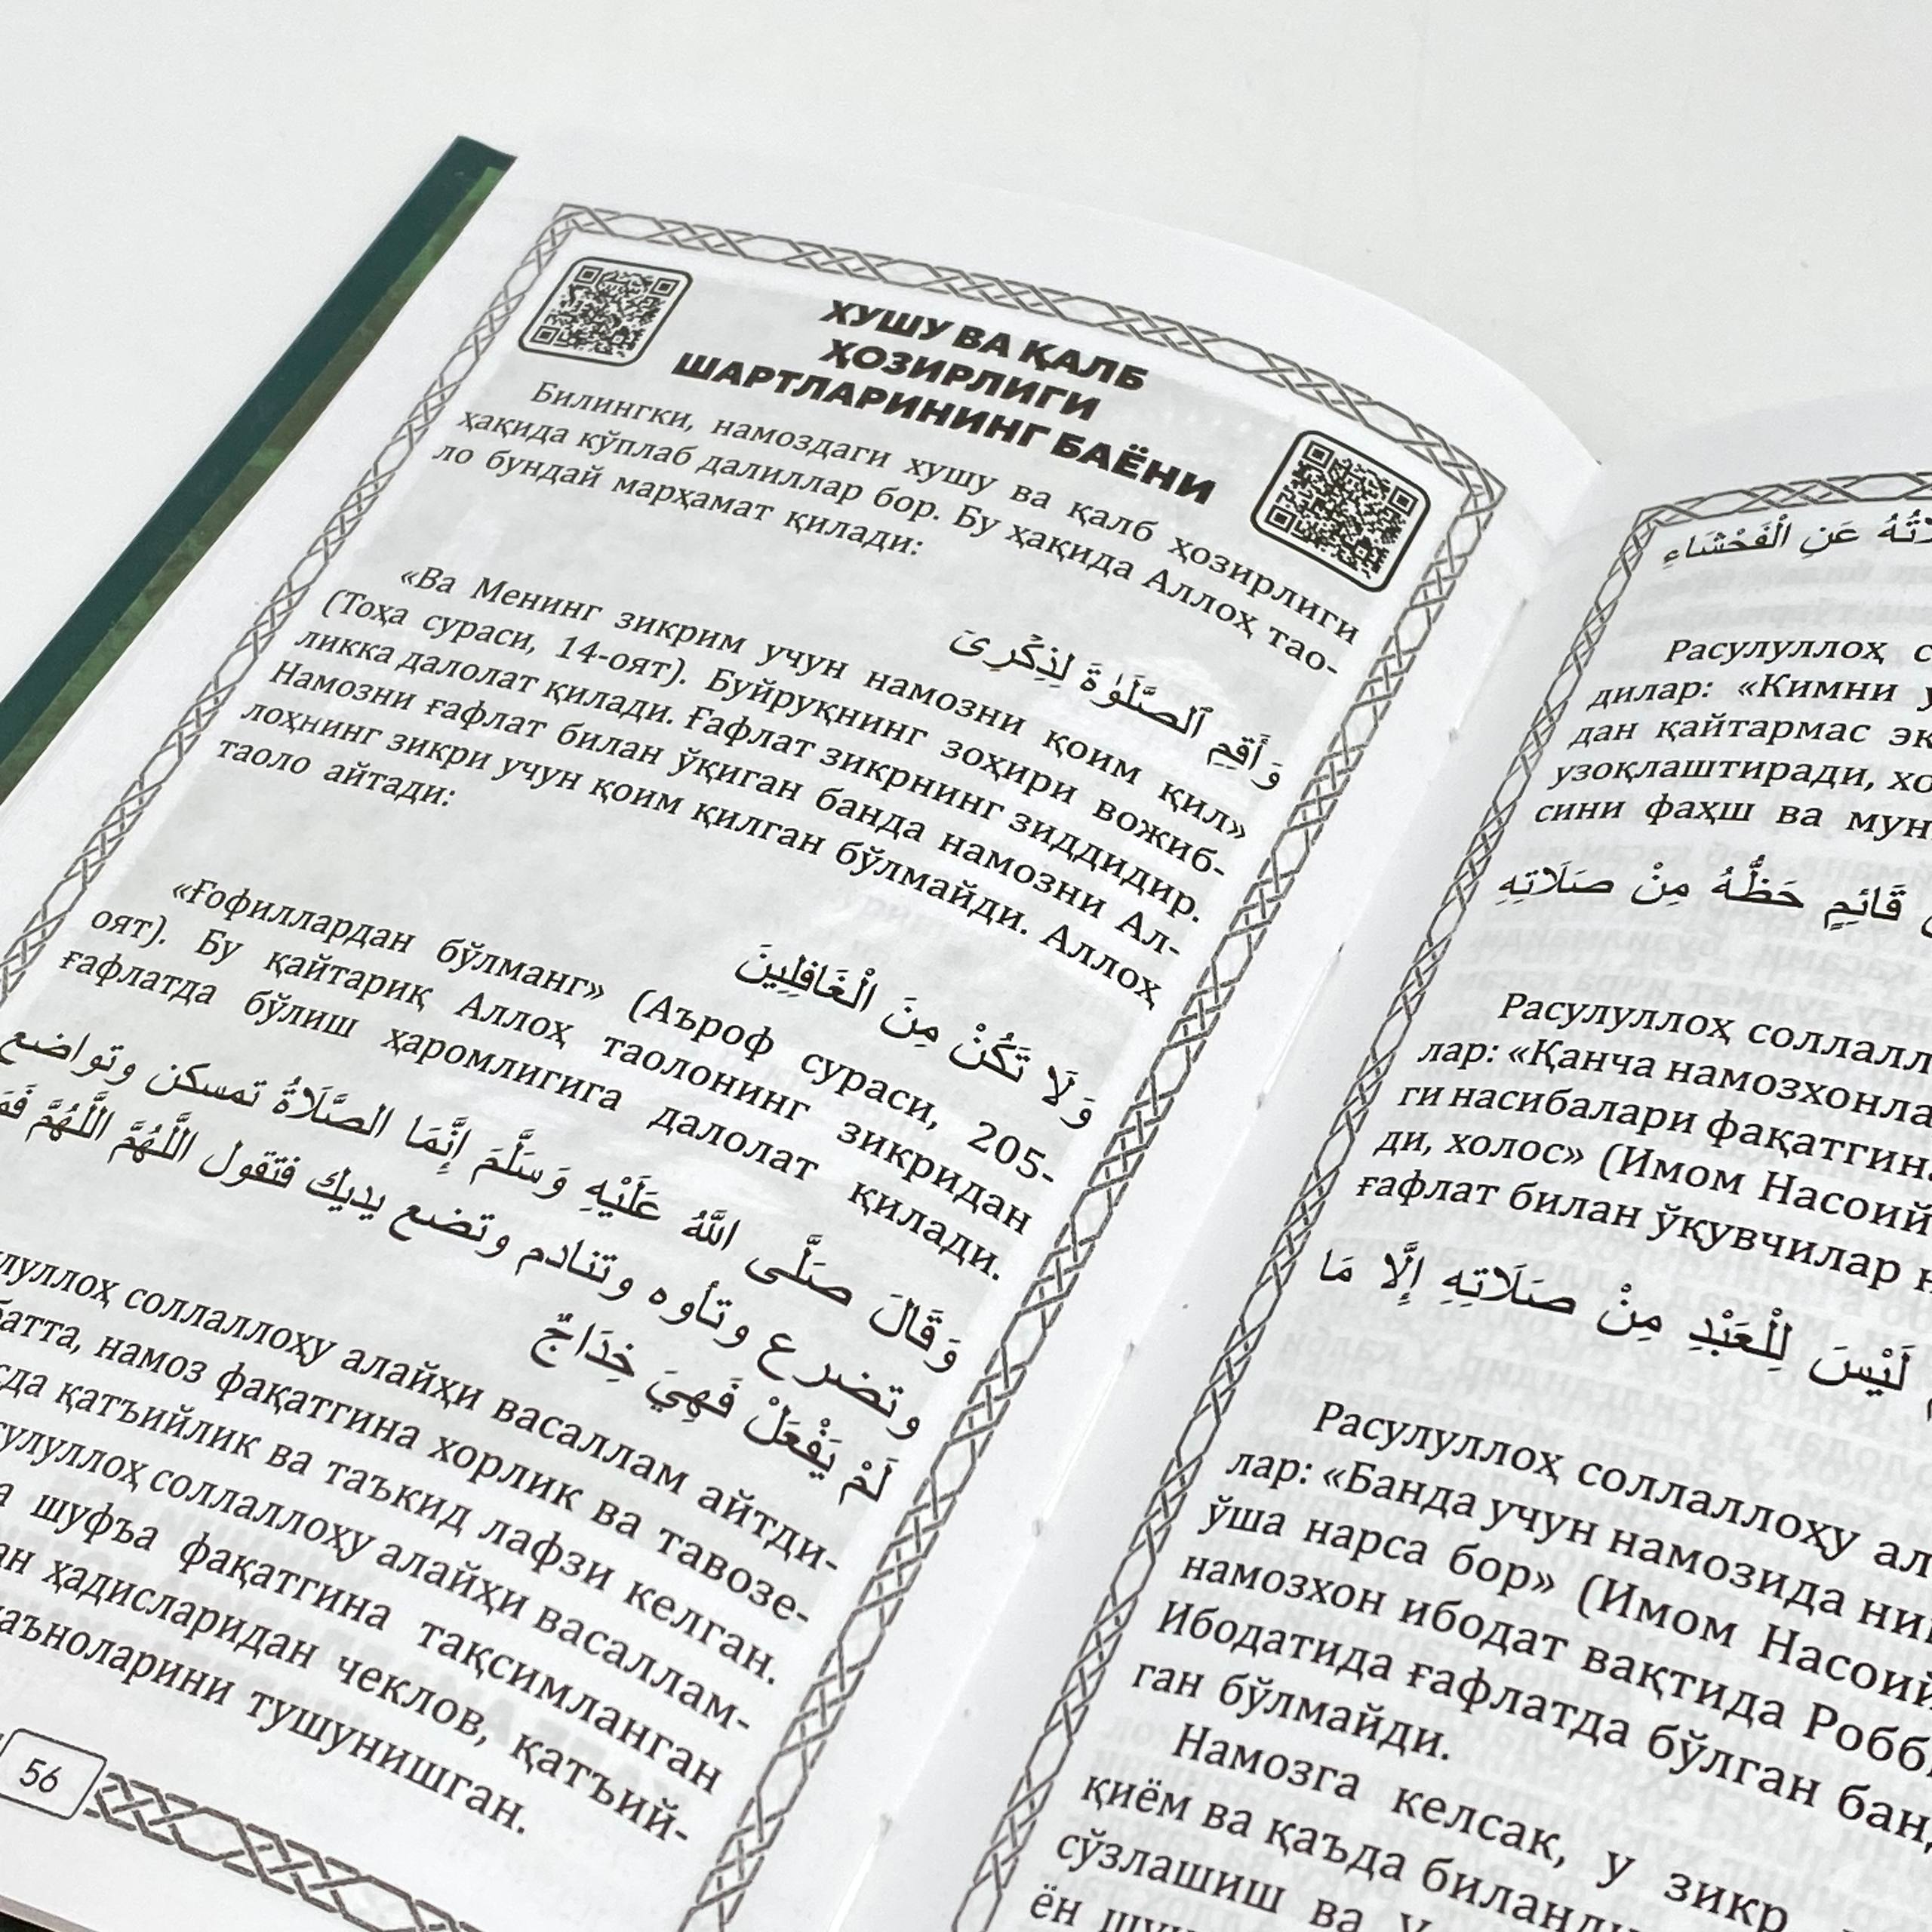 ХУШУ ВА ҚАЛБ
ҲОЗИРЛИГИ
ШАРТЛАРИНИНГ БАЁНИ
Билингки, намоздаги хушу ва қалб ҳозирлиги
ҳақида кўплаб далиллар бор. Бу ҳақида Аллоҳ тао-
ло бундай марҳамат қилади:
وَأَقِمِ ٱلصَّلَوٰةَ لِذِكْرِىٓ
«Ва Менинг зикрим учун намозни қоим қил»
(Тоҳа сураси, 14-оят). Буйруқнинг зоҳири вожиб-
ликка далолат қилади. Ғафлат зикрнинг зиддидир.
Намозни ғафлат билан ўқиган банда намозни Ал-
лоҳнинг зикри учун қоим қилган бўлмайди. Аллоҳ
таоло айтади:
وَلَا تَكُنْ مِنَ الْغَافِلِينَ
«Ғофиллардан бўлманг» (Аъроф сураси, 205-
оят). Бу қайтариқ Аллоҳ таолонинг зикридан
ғафлатда бўлиш ҳаромлигига далолат қилади.
وَقَالَ صَلَّى اللَّهُ عَلَيْهِ وَسَلَّمَ إِنَّمَا الصَّلَاةُ تمسكن وتواضع
وتضرع وتأوه وتنادم وتضع يديك فتقول اللَّهُمَّ اللَّهُمَّ
لَمْ يَفْعَلْ فَهِيَ خِدَاجٌ
соллаллоҳу алайҳи васаллам айтди-
намоз фақатгина хорлик ва тавозе-
қатъийлик ва таъкид лафзи келган.
соллаллоҳу алайҳи васаллам-
шуфъа фақатгина тақсимланган
ҳадисларидан чеклов, қатъий-
тушунишган.
56
عَنِ الْفَحْشَاءِ
Расулуллоҳ
дилар: «Кимни
дан қайтармас
узоқлаштиради,
сини фаҳш ва
قَائِمٍ حَظُّهُ مِنْ صَلَاتِهِ
Расулуллоҳ
лар: «Қанча
ги насибалари
ди, холос» (Имом Насоий
ғафлат билан ўқувчилар
لَيْسَ لِلْعَبْدِ مِنْ صَلَاتِهِ إِلَّا مَا
Расулуллоҳ соллаллоҳу
лар: «Банда учун намозида
ўша нарса бор» (Имом Насоий
намозхон ибодат вақтида
Ибодатида ғафлатда бўлган
ган бўлмайди.
Намозга келсак, у зикр,
қиём ва қаъда
сўзлашиш ва
ён